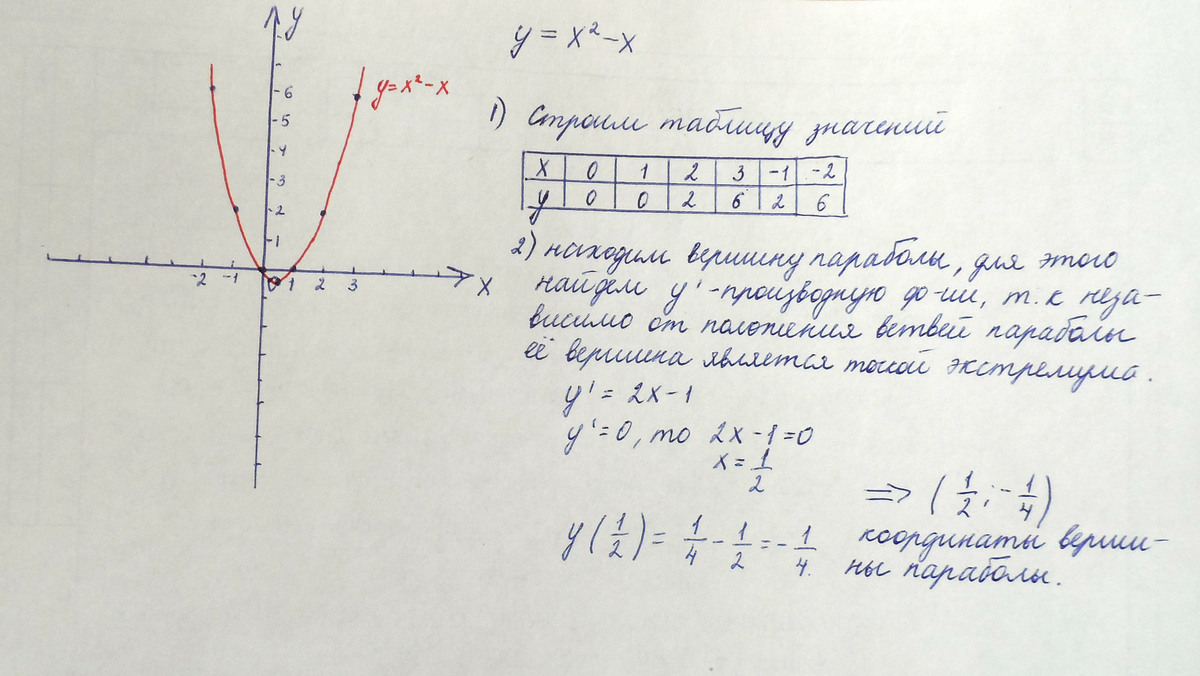 y
y = x² - x
6
5
4
3
2
1
-2 -1 0 1 2 3 x
y = x² - x
1) Строим таблицу значений
x 0 1 2 3 -1 -2
y 0 0 2 6 2 6
2) находим вершину параболы, для этого
найдем y' - производную ф-ии, т.к неза-
висимо от положения ветвей параболы
её вершина является точкой экстремума.
y' = 2x - 1
y' = 0, то 2x - 1 = 0
x = 1/2
y(1/2) = 1/4 - 1/2 = -1/4.
⇒ (1/2; -1/4)
координаты верши-
ны параболы.